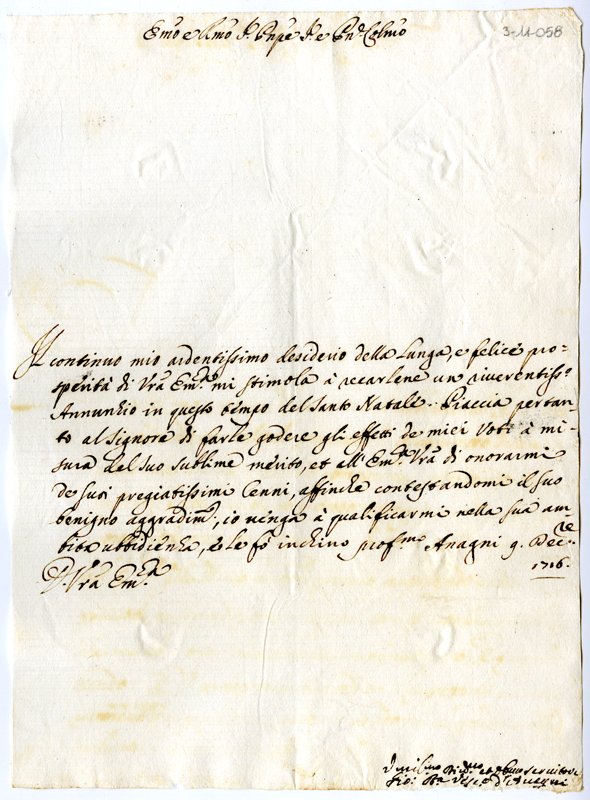 3-11-058
Emo e Rmo Sr. Pnpe Sr. e Pne. Colmo
Il continuo mio ardentissimo desiderio della lunga, e felice pro-
sperità di Vra Emza mi stimola à recarlene un riverentisso
Annunzio in questo tempo del Santo Natale. Piaccia pertan-
to al Signore di farle godere gli effetti de miei Voti à mi-
sura del suo sublime merito, et all'Emza Vra di onorarmi
de suoi pregiatissimi Cenni, affinche contestandomi il suo
benigno aggradimto, io venga à qualificarmi nella sua am-
bita ubbidienza, e le fò inchino profmo Anagni 9. Decre
1716.
D. Vra Emza
Umilmo et obmo servitore
Gio: Bta Vesco d'Anagni